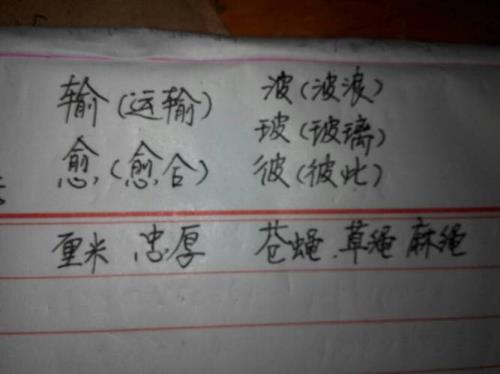 输(运输) 波(波浪)
玻(玻璃)
愈(愈合) 彼(彼此)
厘米 忠厚 苍蝇.草绳 麻绳